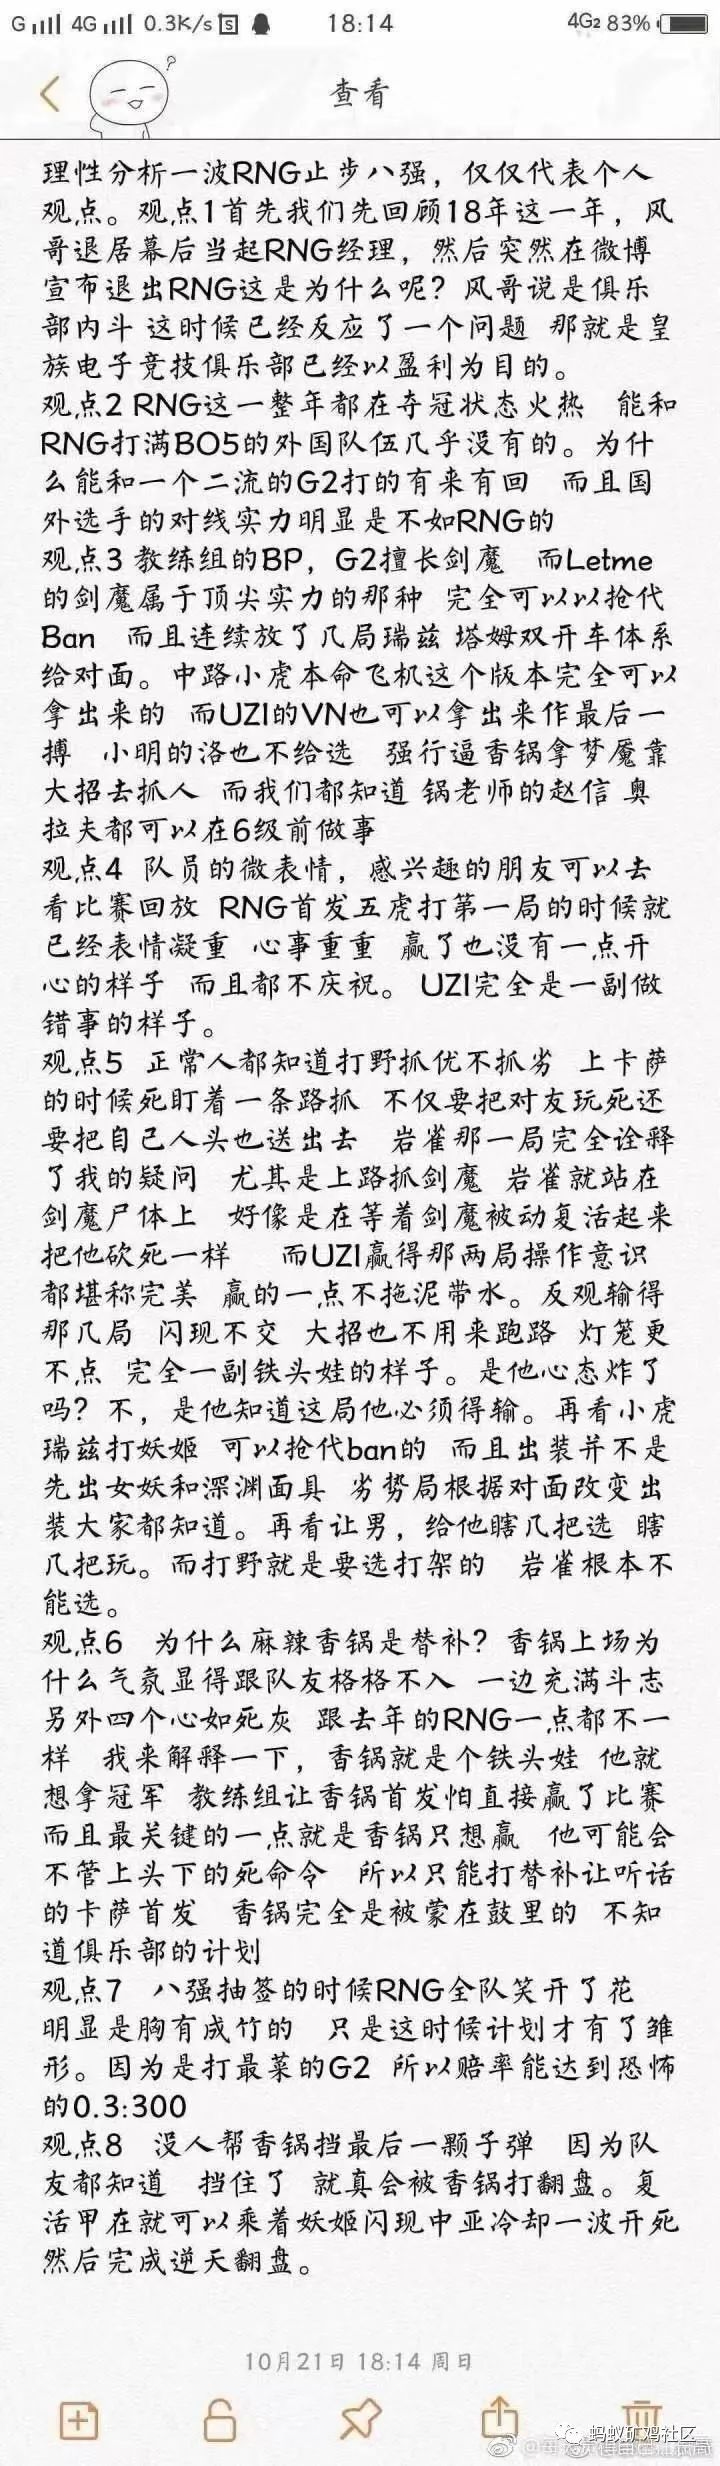 G 4G 0.3K/s 18:14 4G2 83%
查看
理性分析一波RNG止步八强，仅仅代表个人
观点。观点1首先我们先回顾18年这一年，风
哥退居幕后当起RNG经理，然后突然在微博
宣布退出RNG这是为什么呢？风哥说是俱乐
部内斗 这时候已经反应了一个问题 那就是皇
族电子竞技俱乐部已经以盈利为目的。
观点2 RNG这一整年都在夺冠状态火热 能和
RNG打满BO5的外国队伍几乎没有的。为什
么能和一个二流的G2打的有来有回 而且国
外选手的对线实力明显是不如RNG的
观点3 教练组的BP，G2擅长剑魔 而Letme
的剑魔属于顶尖实力的那种 完全可以以抢代
Ban 而且连续放了几局瑞兹 塔姆双开车体系
给对面。中路小虎本命飞机这个版本完全可以
拿出来的 而UZI的VN也可以拿出来作最后一
搏 小明的洛也不给选 强行逼香锅拿梦魇靠
大招去抓人 而我们都知道 锅老师的赵信 奥
拉夫都可以在6级前做事
观点4 队员的微表情，感兴趣的朋友可以去
看比赛回放 RNG首发五虎打第一局的时候就
已经表情凝重 心事重重 赢了也没有一点开
心的样子 而且都不庆祝。UZI完全是一副做
错事的样子。
观点5 正常人都知道打野抓优不抓劣 上卡萨
的时候死盯着一条路抓 不仅要把对友玩死还
要把自己人头也送出去 岩雀那一局完全诠释
了我的疑问 尤其是上路抓剑魔 岩雀就站在
剑魔尸体上 好像是在等着剑魔被动复活起来
把他砍死一样 而UZI赢得那两局操作意识
都堪称完美 赢的一点不拖泥带水。反观输得
那几局 闪现不交 大招也不用来跑路 灯笼更
不点 完全一副铁头娃的样子。是他心态炸了
吗？不，是他知道这局他必须得输。再看小虎
瑞兹打妖姬 可以抢代ban的 而且出装并不是
先出女妖和深渊面具 劣势局根据对面改变出
装大家都知道。再看让男，给他瞎几把选 瞎
几把玩。而打野就是要选打架的 岩雀根本不
能选。
观点6 为什么麻辣香锅是替补？香锅上场为
什么气氛显得跟队友格格不入 一边充满斗志
另外四个心如死灰 跟去年的RNG一点都不一
样 我来解释一下，香锅就是个铁头娃 他就
想拿冠军 教练组让香锅首发怕直接赢了比赛
而且最关键的一点就是香锅只想赢 他可能会
不管上头下的死命令 所以只能打替补让听话
的卡萨首发 香锅完全是被蒙在鼓里的 不知
道俱乐部的计划
观点7 八强抽签的时候RNG全队笑开了花
明显是胸有成竹的 只是这时候计划才有了雏
形。因为是打最菜的G2 所以赔率能达到恐怖
的0.3:300
观点8 没人帮香锅挡最后一颗子弹 因为队
友都知道 挡住了 就真会被香锅打翻盘。复
活甲在就可以乘着妖姬闪现中亚冷却一波开死
然后完成逆天翻盘。
10月21日 18:14 周日
蚂蚁矿鸡社区